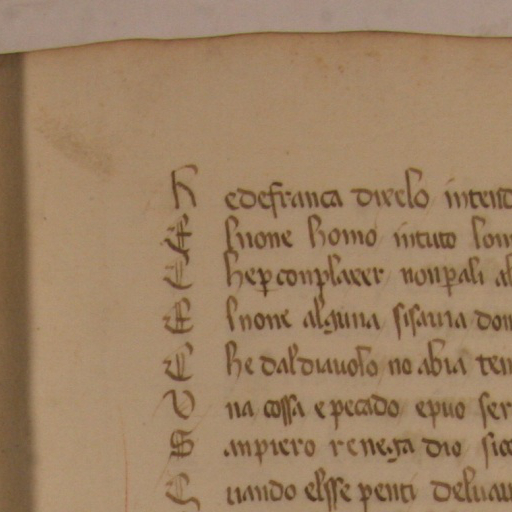 R edefranca direlo intend
E lnone homo intuto lom
C hep conplacer nonpali al
E lnone alguna sisauia don
C he dal diauolo no abia ten
V na cossa e pecado epuo ser
S anpiero renega dio sico
Q uando elsse penti deluau